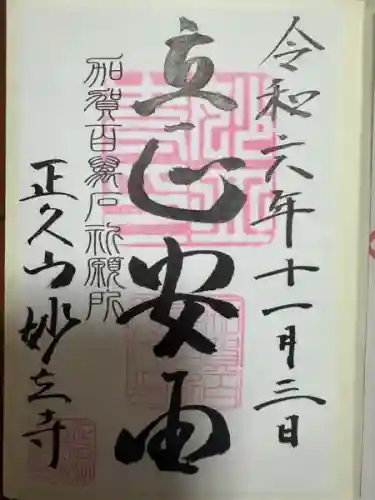 令和六年十一月三日
立正安国
加賀百万石祈願所
正久山妙立寺